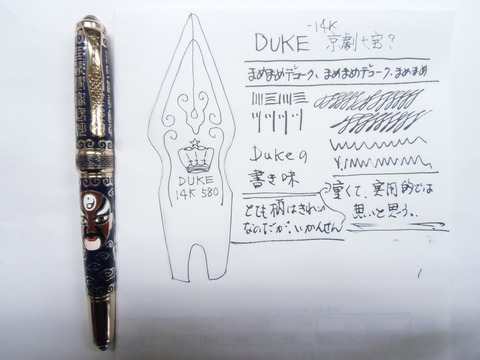 DUKE -14K 京劇七宝?
まめまめデューク、まめまめデューク、まめまめ
Dukeの
書き味
とても柄はきれい
なのだが、いかんせん
重くて、実用的では
ないと思う。
DUKE
14K 580